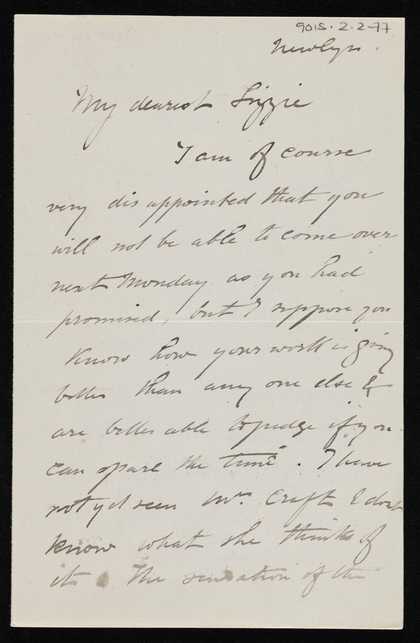 9015.2.2.77
Newlyn.
My dearest Lizzie
I am of course
very disappointed that you
will not be able to come over
next Monday as you had
promised, but I suppose you
know how your work is going
better than any one else &
are better able to judge if you
can spare the time". I have
not yet seen Mrs Craft & dont
know what she thinks of
it. The sensation of the